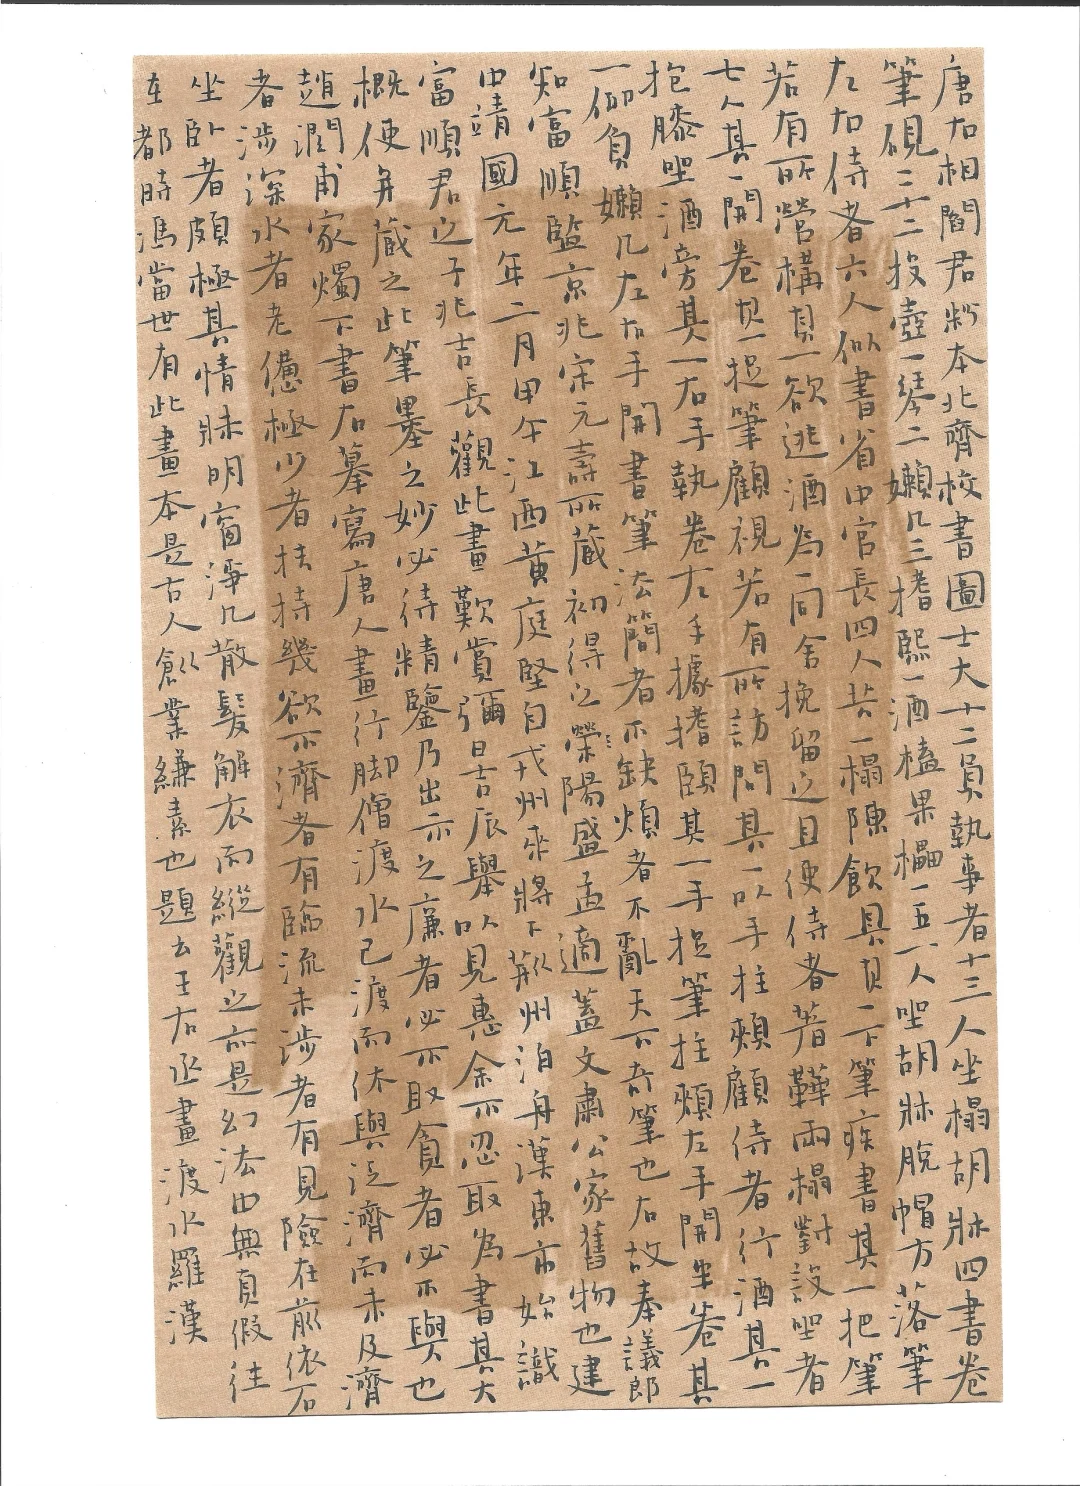 唐右相閻君粉本北齊校書圖士大十二員執事者十三人坐榻胡牀四書卷
筆硯二十二投壺一琴二嬾几三搘頤一酒榼果櫑一五人坐胡牀脫帽方落筆
左右侍者六人似書省中官長四人共一榻陳飲具其一下筆疾書其一把筆
若有所營構其一欲逃酒為一同舍挽留之且使侍者著鞾兩榻對設坐者
七人其一開卷其一捉筆顧視若有所訪問其一以手拄頰顧侍者行酒其一
抱膝坐酒旁其一右手執卷左手據搘頤其一手捉筆拄頰左手開半卷其
一仰負嬾几左右手開書筆法簡者不缺煩者不亂天下奇筆也右故奉議郎
知富順監京兆宋元壽所藏初得之滎陽盛孟適蓋文肅公家舊物也建
中靖國元年二月甲午江西黃庭堅自戎州來將下荊州泊舟漢東市始識
富順君之子兆吉長觀此畫歎賞彌日吉辰舉以見惠余不忍取為書其大
概使并藏之此筆墨之妙必待精鑒乃出示之廉者必不取貪者必不與也
趙潤甫家燭下書右摹寫唐人畫行脚僧渡水已渡而休與泛濟而未及濟
者涉深水者老憊極少者扶持幾欲不濟者有臨流未涉者有見險在前依石
坐卧者頗極其情狀明窗淨几散髮解衣而縱觀之亦是幻法中無真假往
在都時馮當世有此畫本是古人創業縑素也題云王右丞畫渡水羅漢